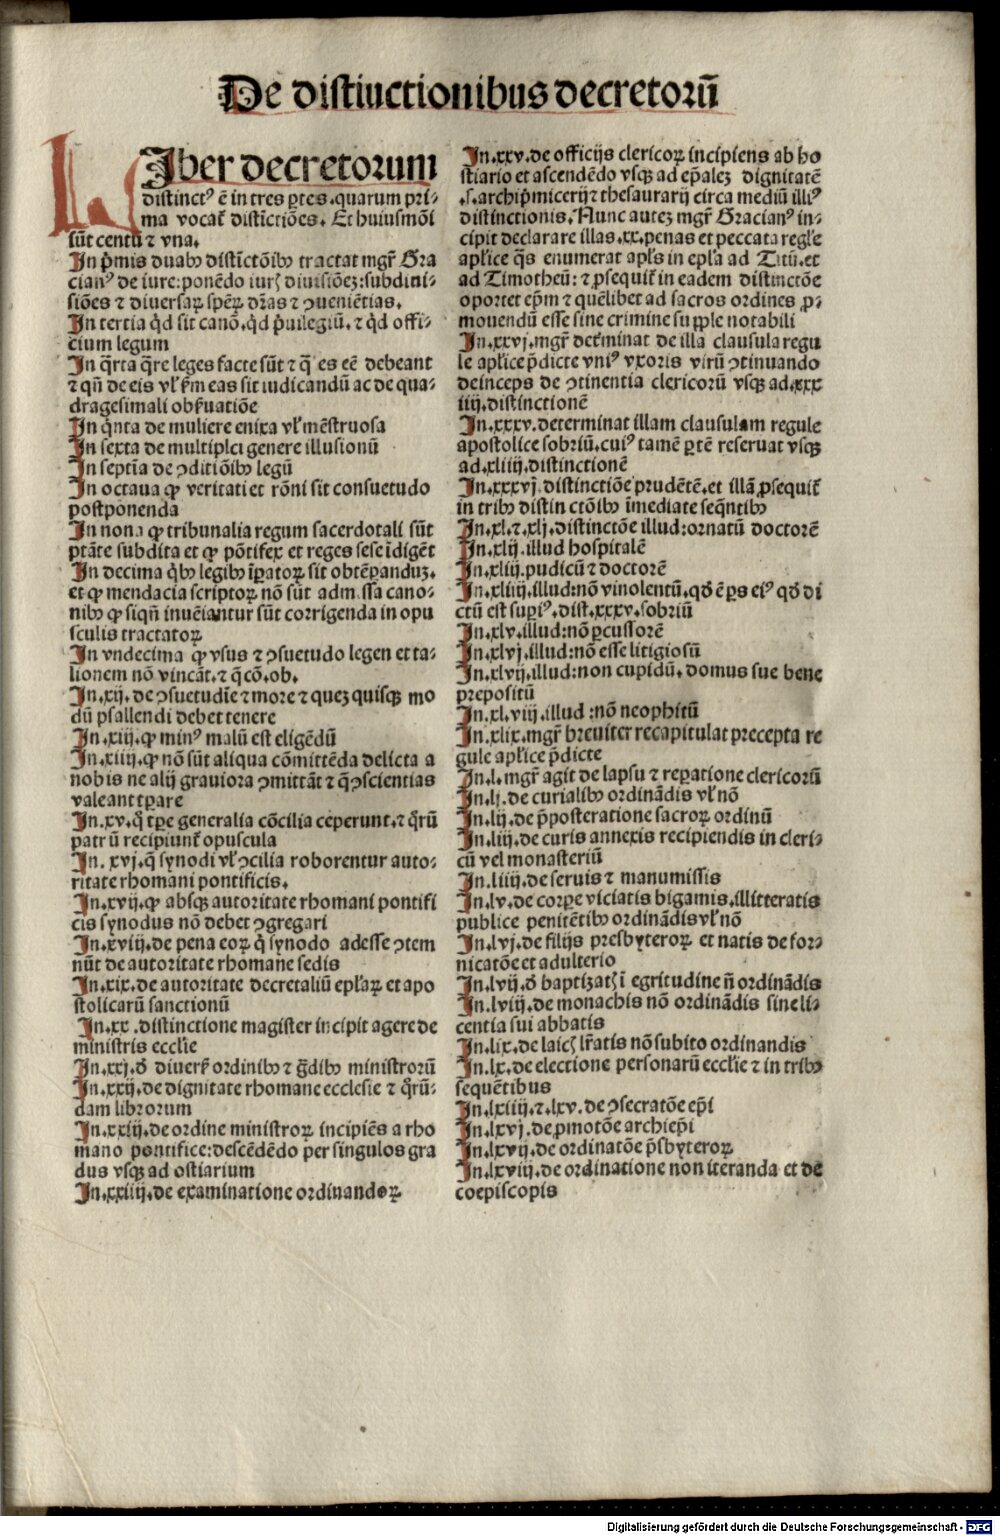 De distinctionibus decretorū
LIber decretorum
distinctꝰ ē in tres ꝑtes. quarum pri⸗
ma vocat̄ distīctiōes. Et huiusmōi
sūt centū ⁊ vna.
In p̄mis duabꝫ distīctōibꝫ tractat mgr̄ Gra
cianꝰ de iure: ponēdo iurꝭ diuisiōeꝫ: subdiui⸗
siōes ⁊ diuersaꝝ speꝝ dr̄ias ⁊ ꝯueniētias.
In tertia qd̄ sit canō. qd̄ p̄uilegiū. ⁊ qd̄ offi⸗
cium legum
In qr̄ta qr̄e leges facte sūt ⁊ q̄ es eē debeant
⁊ qn̄ de eis vl̓ ẜm eas sit iudicandū ac de qua⸗
dragesimali obẜuatiōe
In qn̄ta de muliere enixa vl̓ mēstruosa
In sexta de multiplci genere illusionū
In septīa de ꝯditiōibꝫ legū
In octaua ꝙ veritati et rōni sit consuetudo
postponenda
In nona ꝙ tribunalia regum sacerdotali sūt
ptāte subdita et ꝙ pōtifex et reges sese īdigēt
In decima qb̄ꝫ legibꝫ īꝑatoꝝ sit obtēꝑanduꝫ.
et ꝙ mendacia scriptoꝝ nō sūt admissa cano⸗
nibꝫ ꝙ siqn̄ inuēiantur sūt corrigenda in opu
sculis tractatoꝝ
In vndecima ꝙ vsus ⁊ ꝯsuetudo legen et ta⸗
lionem nō vincāt. ⁊ q̄ cō. ob.
In. xij. de ꝯsuetudīe ⁊ more ⁊ queꝫ quisqꝫ mo
dū psallendi debet tenere
In. xiij. ꝙ minꝰ malū est eligēdū
In. xiiij. ꝙ nō sūt aliqua cōmittēda delicta a
nobis ne alij grauiora ꝯmittāt ⁊ q̄ ꝯscientias
valeant tꝑare
In. xv. q̄ tꝑe generalia cōcilia ceperunt. ⁊ qr̄ū
patrū recipiunt̄ opuscula
In. xvj. q̄ synodi vl̓ ꝯcilia roborentur auto⸗
ritate rhomani pontificis.
In. xvij. ꝙ absqꝫ autoritate rhomani pontifi
cis synodus nō debet ꝯgregari
In. xviij. de pena eoꝝ q̄ synodo adesse ꝯtem
nūt de autoritate rhomane sedis
In. xix. de autoritate decretaliū epl̄aꝝ et apo
stolicarū sanctionū
In. xx. distinctione magister incipit agere de
ministris eccl̄ie
In. xxj. ð diuerẜ ordinibꝫ ⁊ gr̄dibꝫ ministrorū
In. xxij. de dignitate rhomane ecclesie ⁊ qr̄ū⸗
dam librorum
In. xxiij. de ordine ministroꝝ incipiēs a rho
mano pontifice: descēdēdo per singulos gra
dus vsqꝫ ad ostiarium
In. xxiiij. de examinatione ordinandoꝝ
In. xxv. de officijs clericoꝝ incipiens ab ho
stiario et ascendēdo vsqꝫ ad epāleꝫ dignitatē
.s. archipͥmicerij ⁊ thesaurarij circa mediū illiꝰ
distinctionis. Nunc auteꝫ mgr̄ Gracianꝰ in⸗
cipit declarare illas. xx. penas et peccata regl̄e
apl̄ice qs̄ enumerat apl̄s in epl̄a ad Titū. et
ad Timotheū: ⁊ ꝓsequit̄ in eadem distinctōe
oportet ep̄m ⁊ quēlibet ad sacros ordines ꝓ⸗
mouendū esse sine crimine su pple notabili
In. xxvj. mgr̄ det̄minat de illa clausula regu
le apl̄ice p̄dicte vniꝰ vxoris virū ꝯtinuando
deinceps de ꝯtinentia clericorū vsqꝫ ad. xxx
iiij. distinctionē
In. xxxv. determinat illam clausulam regule
apostolice sobriū. cuiꝰ tamē ꝑtē reseruat vsqꝫ
ad. xliiij. distinctionē
In. xxxvj. distinctiōe prudētē. et illā ꝓsequit̄
in tribꝫ distin ctōibꝫ īmediate seqn̄tibꝫ
In. xl. ⁊. xlj. distinctōe illud: ornatū doctorē
In. xlij. illud hospitalē
In. xliij. pudicū ⁊ doctorē
In. xliiij. illud: nō vinolentū. qð ē ꝑs eiꝰ qð di
ctū est supͥꝰ. dist. xxxv. sobriū
In. xlv. illud: nō ꝑcussorē
In. xlvj. illud: nō esse litigiosū
In. xlvij. illud: non cupidū. domus sue bene
prepositū
In. xl. viij. illud: nō neophitū
In. xlix. mgr̄ breuiter recapitulat precepta re
gule apl̄ice p̄dicte
In. l. mgr̄ agit de lapsu ⁊ reꝑatione clericorū
In. lj. de curialibꝫ ordinādis vl̓ nō
In. lij. de p̄posteratione sacroꝝ ordinū
In. liij. de curis annexis recipiendis in cleri⸗
cū vel monasteriū
In. liiij. de seruis ⁊ manumissis
In. lv. de corꝑe viciatis bigamis. illitteratis
publice penitētibꝫ ordinādis vl̓ nō
In. lvj. de filijs presbyteroꝝ et natis de for⸗
nicatōe et adulterio
In. lvij. ð baptizatꝭ ī egritudine n̄ ordinādis
In. lviij. de monachis nō ordinādis sine li⸗
centia sui abbatis
In. lix. de laicꝭ lr̄atis nō subito ordinandis
In. lx. de electione personarū eccl̄ie ⁊ in tribꝫ
sequētibus
In. lxiiij. ⁊. lxv. de ꝯsecratōe ep̄i
In. lxvj. de ꝓmotōe archiep̄i
In. lxvij. de ordinatōe p̄sbyteroꝝ
In. lxviij. de ordinatione non iteranda et de
coepiscopis
Digitalisierung gefördert durch die Deutsche Forschungsgemeinschaft - DFG